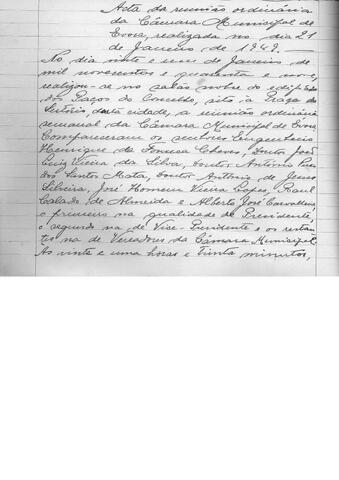 Acta da reunião ordinária
da Câmara Municipal de
Evora, realizada no dia 21
de Janeiro de 1949.
No dia vinte e um de Janeiro de
mil novecentos e quarenta e nove,
realizou-se no salão nobre do edifício
dos Paços do Concelho, sito à Praça do
Sertório, desta cidade, a reunião ordinária
semanal da Câmara Municipal de Evora.
Compareceram os senhores Engenheiro
Henrique da Fonseca Chaves, Doutor João
Luiz Vieira da Silva, Doutor António
dos Santos Mata, Doutor António de Jesus
Silveira, José Homem Vieira Lopes, Raul
Calado de Almeida e Alberto José Carvalheira
o primeiro na qualidade de Presidente,
o segundo na de Vice-Presidente e os restan-
tes na de Vereadores da Câmara Municipal.
As vinte e uma horas e trinta minutos,